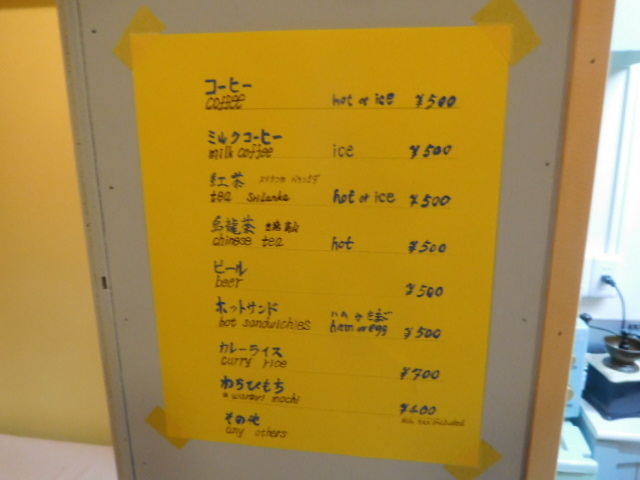 コーヒー
coffee hot or ice ¥500
ミルクコーヒー
milk coffee ice ¥500
紅茶
tea Sri Lanka hot or ice ¥500
烏龍茶
chinese tea hot ¥500
ビール
beer ¥500
ホットサンド ハム か たまご
hot sandwichies ham or egg ¥500
カレーライス
curry rice ¥700
わらびもち
warabi mochi ¥400
その他 tax included
any others